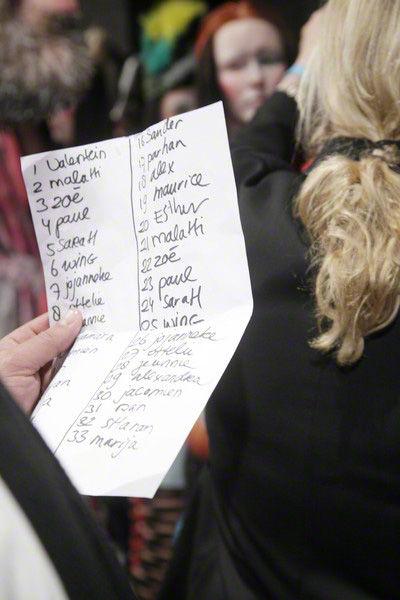 1 Valentin
2 malatti
3 zoë
4 paul
5 Sarah
6 wing
7 jojanneke
8 ottelie
16 Sander
17 parhan
18 alex
19 maurice
20 Esther
21 malatti
22 zoë
23 paul
24 Sarah
25 wing
26 jojanneke
27 ottelie
28 jeannie
29 alexandra
30 jacomien
31
32
33 marija